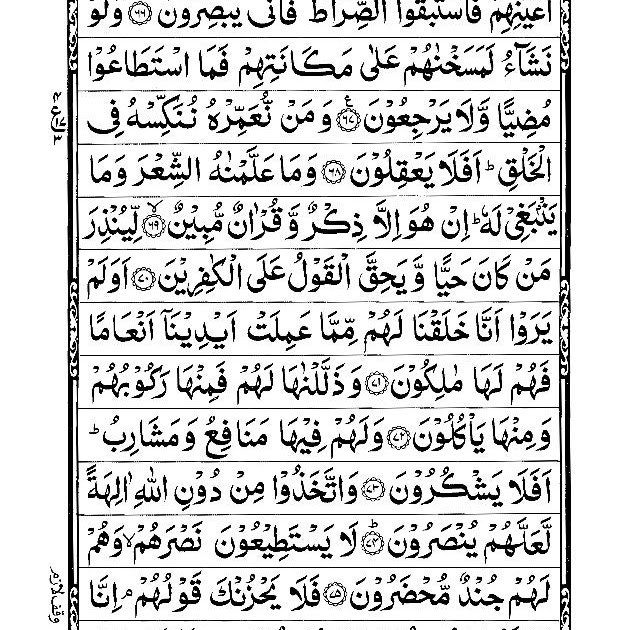 اَعْيُنِهِمْ فَاسْتَبَقُوا الصِّرَاطَ فَاَنّٰى يُبْصِرُوْنَ ﴿۶۶﴾ وَلَوْ
نَشَآءُ لَمَسَخْنٰهُمْ عَلٰى مَكَانَتِهِمْ فَمَا اسْتَطَاعُوْا
مُضِيًّا وَّلَا يَرْجِعُوْنَ ﴿۶۷﴾ وَمَنْ نُّعَمِّرْهُ نُنَكِّسْهُ فِى
الْخَلْقِ ؕ اَفَلَا يَعْقِلُوْنَ ﴿۶۸﴾ وَمَا عَلَّمْنٰهُ الشِّعْرَ وَمَا
يَنْۢبَغِىْ لَهٗ ؕ اِنْ هُوَ اِلَّا ذِكْرٌ وَّقُرْاٰنٌ مُّبِيْنٌ ﴿۶۹﴾ لِّيُنْذِرَ
مَنْ كَانَ حَيًّا وَّيَحِقَّ الْقَوْلُ عَلَى الْكٰفِرِيْنَ ﴿۷۰﴾ اَوَلَمْ
يَرَوْا اَنَّا خَلَقْنَا لَهُمْ مِّمَّا عَمِلَتْ اَيْدِيْنَاۤ اَنْعَامًا
فَهُمْ لَهَا مٰلِكُوْنَ ﴿۷۱﴾ وَذَلَّلْنٰهَا لَهُمْ فَمِنْهَا رَكُوْبُهُمْ
وَمِنْهَا يَاْكُلُوْنَ ﴿۷۲﴾ وَلَهُمْ فِيْهَا مَنَافِعُ وَمَشَارِبُ ؕ
اَفَلَا يَشْكُرُوْنَ ﴿۷۳﴾ وَاتَّخَذُوْا مِنْ دُوْنِ اللّٰهِ اٰلِهَةً
لَّعَلَّهُمْ يُنْصَرُوْنَ ﴿۷۴﴾ لَا يَسْتَطِيْعُوْنَ نَصْرَهُمْ ۙ وَهُمْ
لَهُمْ جُنْدٌ مُّحْضَرُوْنَ ﴿۷۵﴾ فَلَا يَحْزُنْكَ قَوْلُهُمْ ۘ اِنَّا
وقف لازم